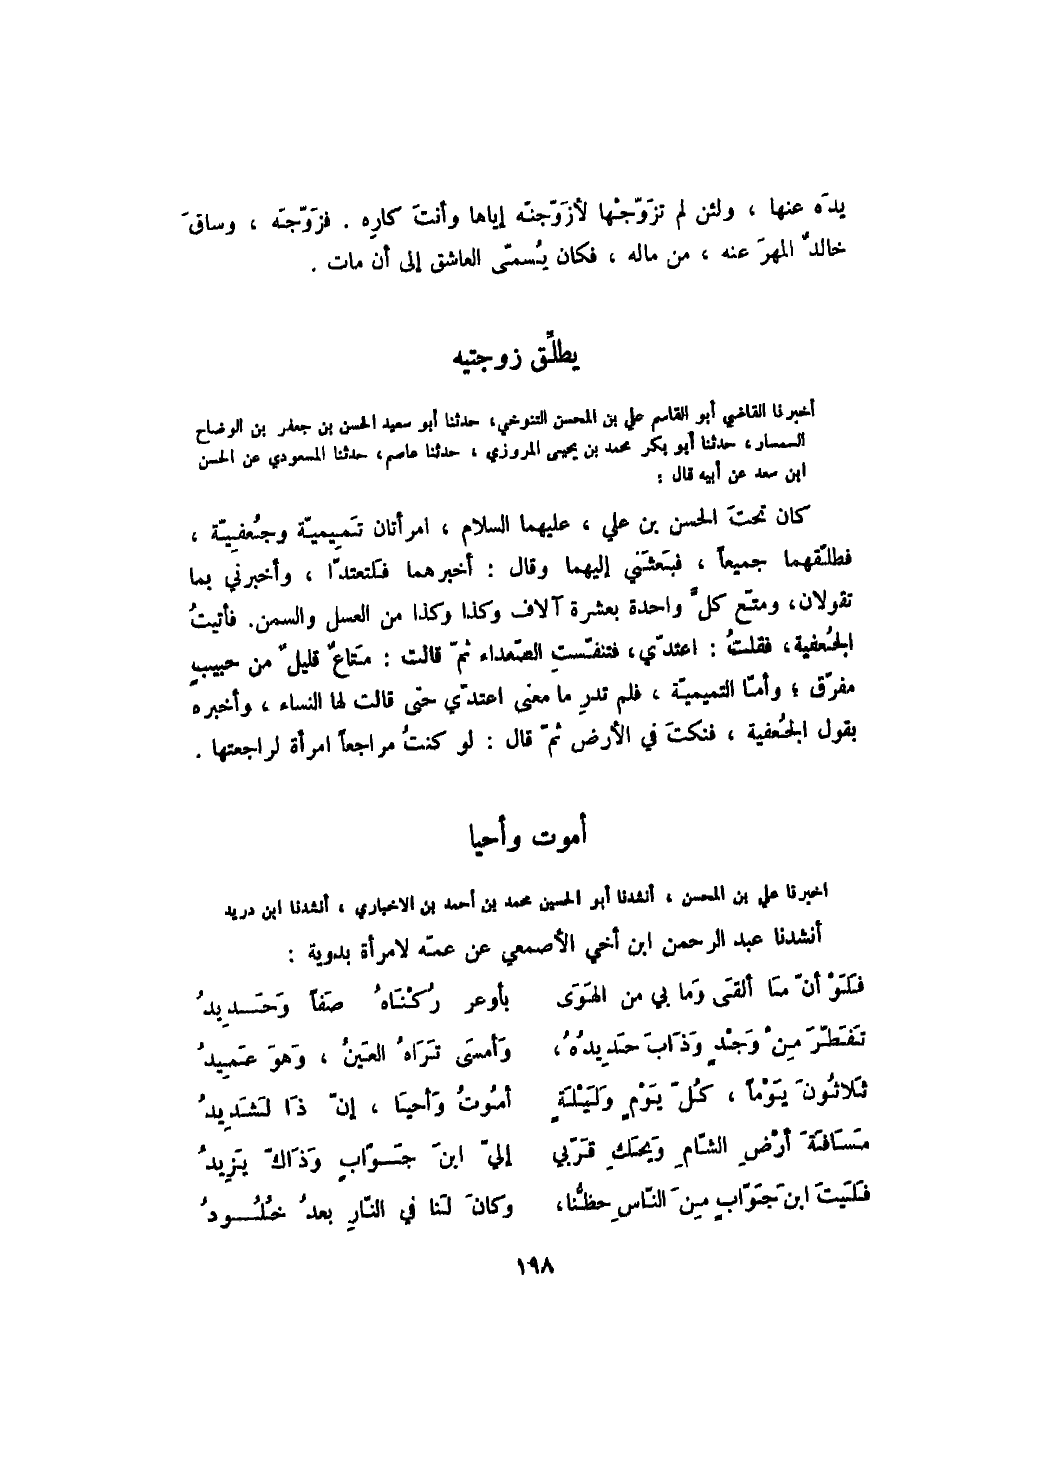 يدَه عنها ، ولئن لم تزَوّجْها لأزَوّجنّه إياها وأنتَ كارِه . فزَوّجَه ، وساقَ
خالدٌ المهرَ عنه ، من ماله ، فكان يُسمّى العاشق إلى أن مات .
يطلِّق زوجتيه
أخبرنا القاضي أبو القاسم علي بن المحسن التنوخي، حدثنا أبو سعيد الحسن بن جعفر بن الوضاح
السمسار، حدثنا أبو بكر محمد بن يحيى المروزي ، حدثنا عاصم، حدثنا المسعودي عن الحسن
ابن سعد عن أبيه قال :
كان تحتَ الحسن بن علي ، عليهما السلام ، امرأتان تَميميّة وجُعفِيّة ،
فطلّقهما جميعاً ، فبَعثَني إليهما وقال : أخبرهما فَلتعتدّا ، وأخبرني بما
تقولان، ومتّع كلّ واحدة بعشرة آلاف وكذا وكذا من العسل والسمن. فأتيتُ
الجُعفية، فقلتُ : اعتدّي، فتنفّستِ الصّعداء ثمّ قالت : مَتاعٌ قليلٌ من حبيبٍ
مفرّق ؛ وأمّا التميميّة ، فلم تدرِ ما معنى اعتدّي حتّى قالت لها النساء ، وأخبره
بقول الجُعفية ، فنكتَ في الأرض ثمّ قال : لو كنتُ مراجعاً امرأة لراجعتها .
أموت وأحيا
اخبرنا علي بن المحسن ، أنشدنا أبو الحسين محمد بن أحمد بن الاخباري ، أنشدنا ابن دريد
أنشدنا عبد الرحمن ابن أخي الأصمعي عن عمّه لامرأة بدوية :
فَلَوْ أنّ مَا ألقَى وَما بي من الهَوَى بأوعر رُكْنَاهُ صَفاً وَحَديدُ
تَفَطّرَ مِنْ وَجْدٍ وَذَابَ حَديدُهُ، وَأمسَى تَرَاهُ العَينُ ، وَهوَ عَمِيدُ
ثَلاثُونَ يَوْماً ، كُلّ يَوْمٍ وَلَيْلَةٍ أمُوتُ وَأحيَا ، إنّ ذَا لَشَدِيدُ
مَسَافَةَ أرْضِ الشّامِ وَيحَكِ قَرّبي إليّ ابنَ جَوّابٍ وَذَاكَ يَزِيدُ
فَلَيتَ ابنَ جَوّابٍ مِنَ النّاسِ حظُّنا، وَكانَ لَنا في النّارِ بعدُ خُلُودُ
١٩٨